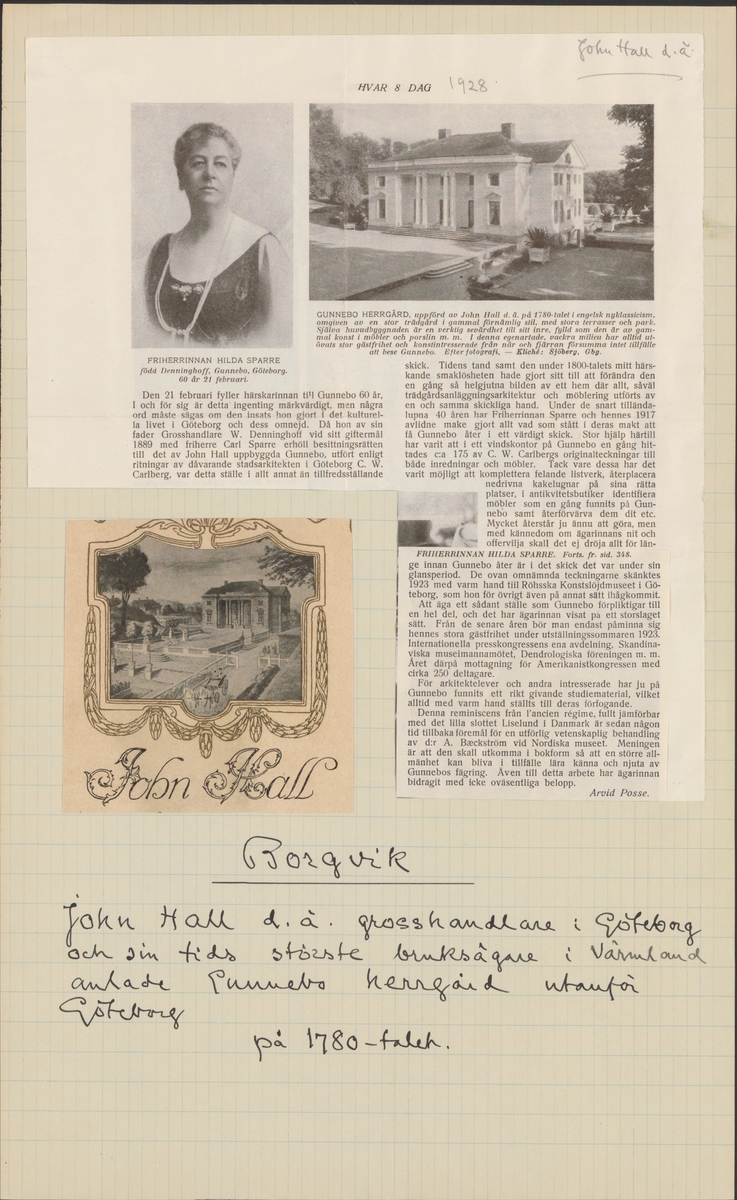 John Hall d.ä.
HVAR 8 DAG 1928
FRIHERRINNAN HILDA SPARRE
född Denninghoff, Gunnebo, Göteborg.
60 år 21 februari.
GUNNEBO HERRGÅRD, uppförd av John Hall d. ä. på 1780-talet i engelsk nyklassicism,
omgiven av en stor trädgård i gammal förnämlig stil, med stora terrasser och park.
Själva huvudbyggnaden är en verklig sevärdhet till sitt inre, fylld som den är av gam-
mal konst i möbler och porslin m. m. I denna egenartade, vackra milieu har alltid ut-
övats stor gästfrihet och konstintresserade från när och fjärran försumma intet tillfälle
att bese Gunnebo. Efter fotografi. — Kliché: Sjöberg, Gbg.
Den 21 februari fyller härskarinnan till Gunnebo 60 år,
I och för sig är detta ingenting märkvärdigt, men några
ord måste sägas om den insats hon gjort i det kulturel-
la livet i Göteborg och dess omnejd. Då hon av sin
fader Grosshandlare W. Denninghoff vid sitt giftermål
1889 med friherre Carl Sparre erhöll besittningsrätten
till det av John Hall uppbyggda Gunnebo, utfört enligt
ritningar av dåvarande stadsarkitekten i Göteborg C. W.
Carlberg, var detta ställe i allt annat än tillfredsställande
skick. Tidens tand samt den under 1800-talets mitt härs-
kande smaklösheten hade gjort sitt till att förändra den
en gång så helgjutna bilden av ett hem där allt, såväl
trädgårdsanläggningsarkitektur och möblering utförts av
en och samma skickliga hand. Under de snart tillända-
lupna 40 åren har Friherrinnan Sparre och hennes 1917
avlidne make gjort allt vad som stått i deras makt att
få Gunnebo åter i ett värdigt skick. Stor hjälp härtill
har varit att i ett vindskontor på Gunnebo en gång hit-
tades c:a 175 av C. W. Carlbergs originalteckningar till
både inredningar och möbler. Tack vare dessa har det
varit möjligt att komplettera felande listverk, återplacera
nedrivna kakelugnar på sina rätta
platser, i antikvitetsbutiker identifiera
möbler som en gång funnits på Gun-
nebo samt återförvärva dem dit etc.
Mycket återstår ju ännu att göra, men
med kännedom om ägarinnans nit och
offervilja skall det ej dröja allt för län-
FRIHERRINNAN HILDA SPARRE. Forts. fr. sid. 348.
ge innan Gunnebo åter är i det skick det var under sin
glansperiod. De ovan omnämnda teckningarne skänktes
1923 med varm hand till Röhsska Konstslöjdmuseet i Gö-
teborg, som hon för övrigt även på annat sätt ihågkommit.
Att äga ett sådant ställe som Gunnebo förpliktigar till
en hel del, och det har ägarinnan visat på ett storslaget
sätt. Från de senare åren bör man endast påminna sig
hennes stora gästfrihet under utställningssommaren 1923.
Internationella presskongressens ena avdelning, Skandina-
viska museimannamötet, Dendrologiska föreningen m. m.
Året därpå mottagning för Amerikanistkongressen med
cirka 250 deltagare.
För arkitektelever och andra intresserade har ju på
Gunnebo funnits ett rikt givande studiematerial, vilket
alltid med varm hand ställts till deras förfogande.
Denna reminiscens från l'ancien régime, fullt jämförbar
med det lilla slottet Liselund i Danmark är sedan någon
tid tillbaka föremål för en utförlig vetenskaplig behandling
av d:r A. Bæckström vid Nordiska museet. Meningen
är att den skall utkomma i bokform så att en större all-
mänhet kan bliva i tillfälle lära känna och njuta av
Gunnebos fägring. Även till detta arbete har ägarinnan
bidragit med icke oväsentliga belopp.
Arvid Posse.
John Hall
Borgvik
John Hall d.ä. grosshandlare i Göteborg
och sin tids störste bruksägare i Värmland
anlade Gunnebo herrgård utanför
Göteborg
på 1780-talet.